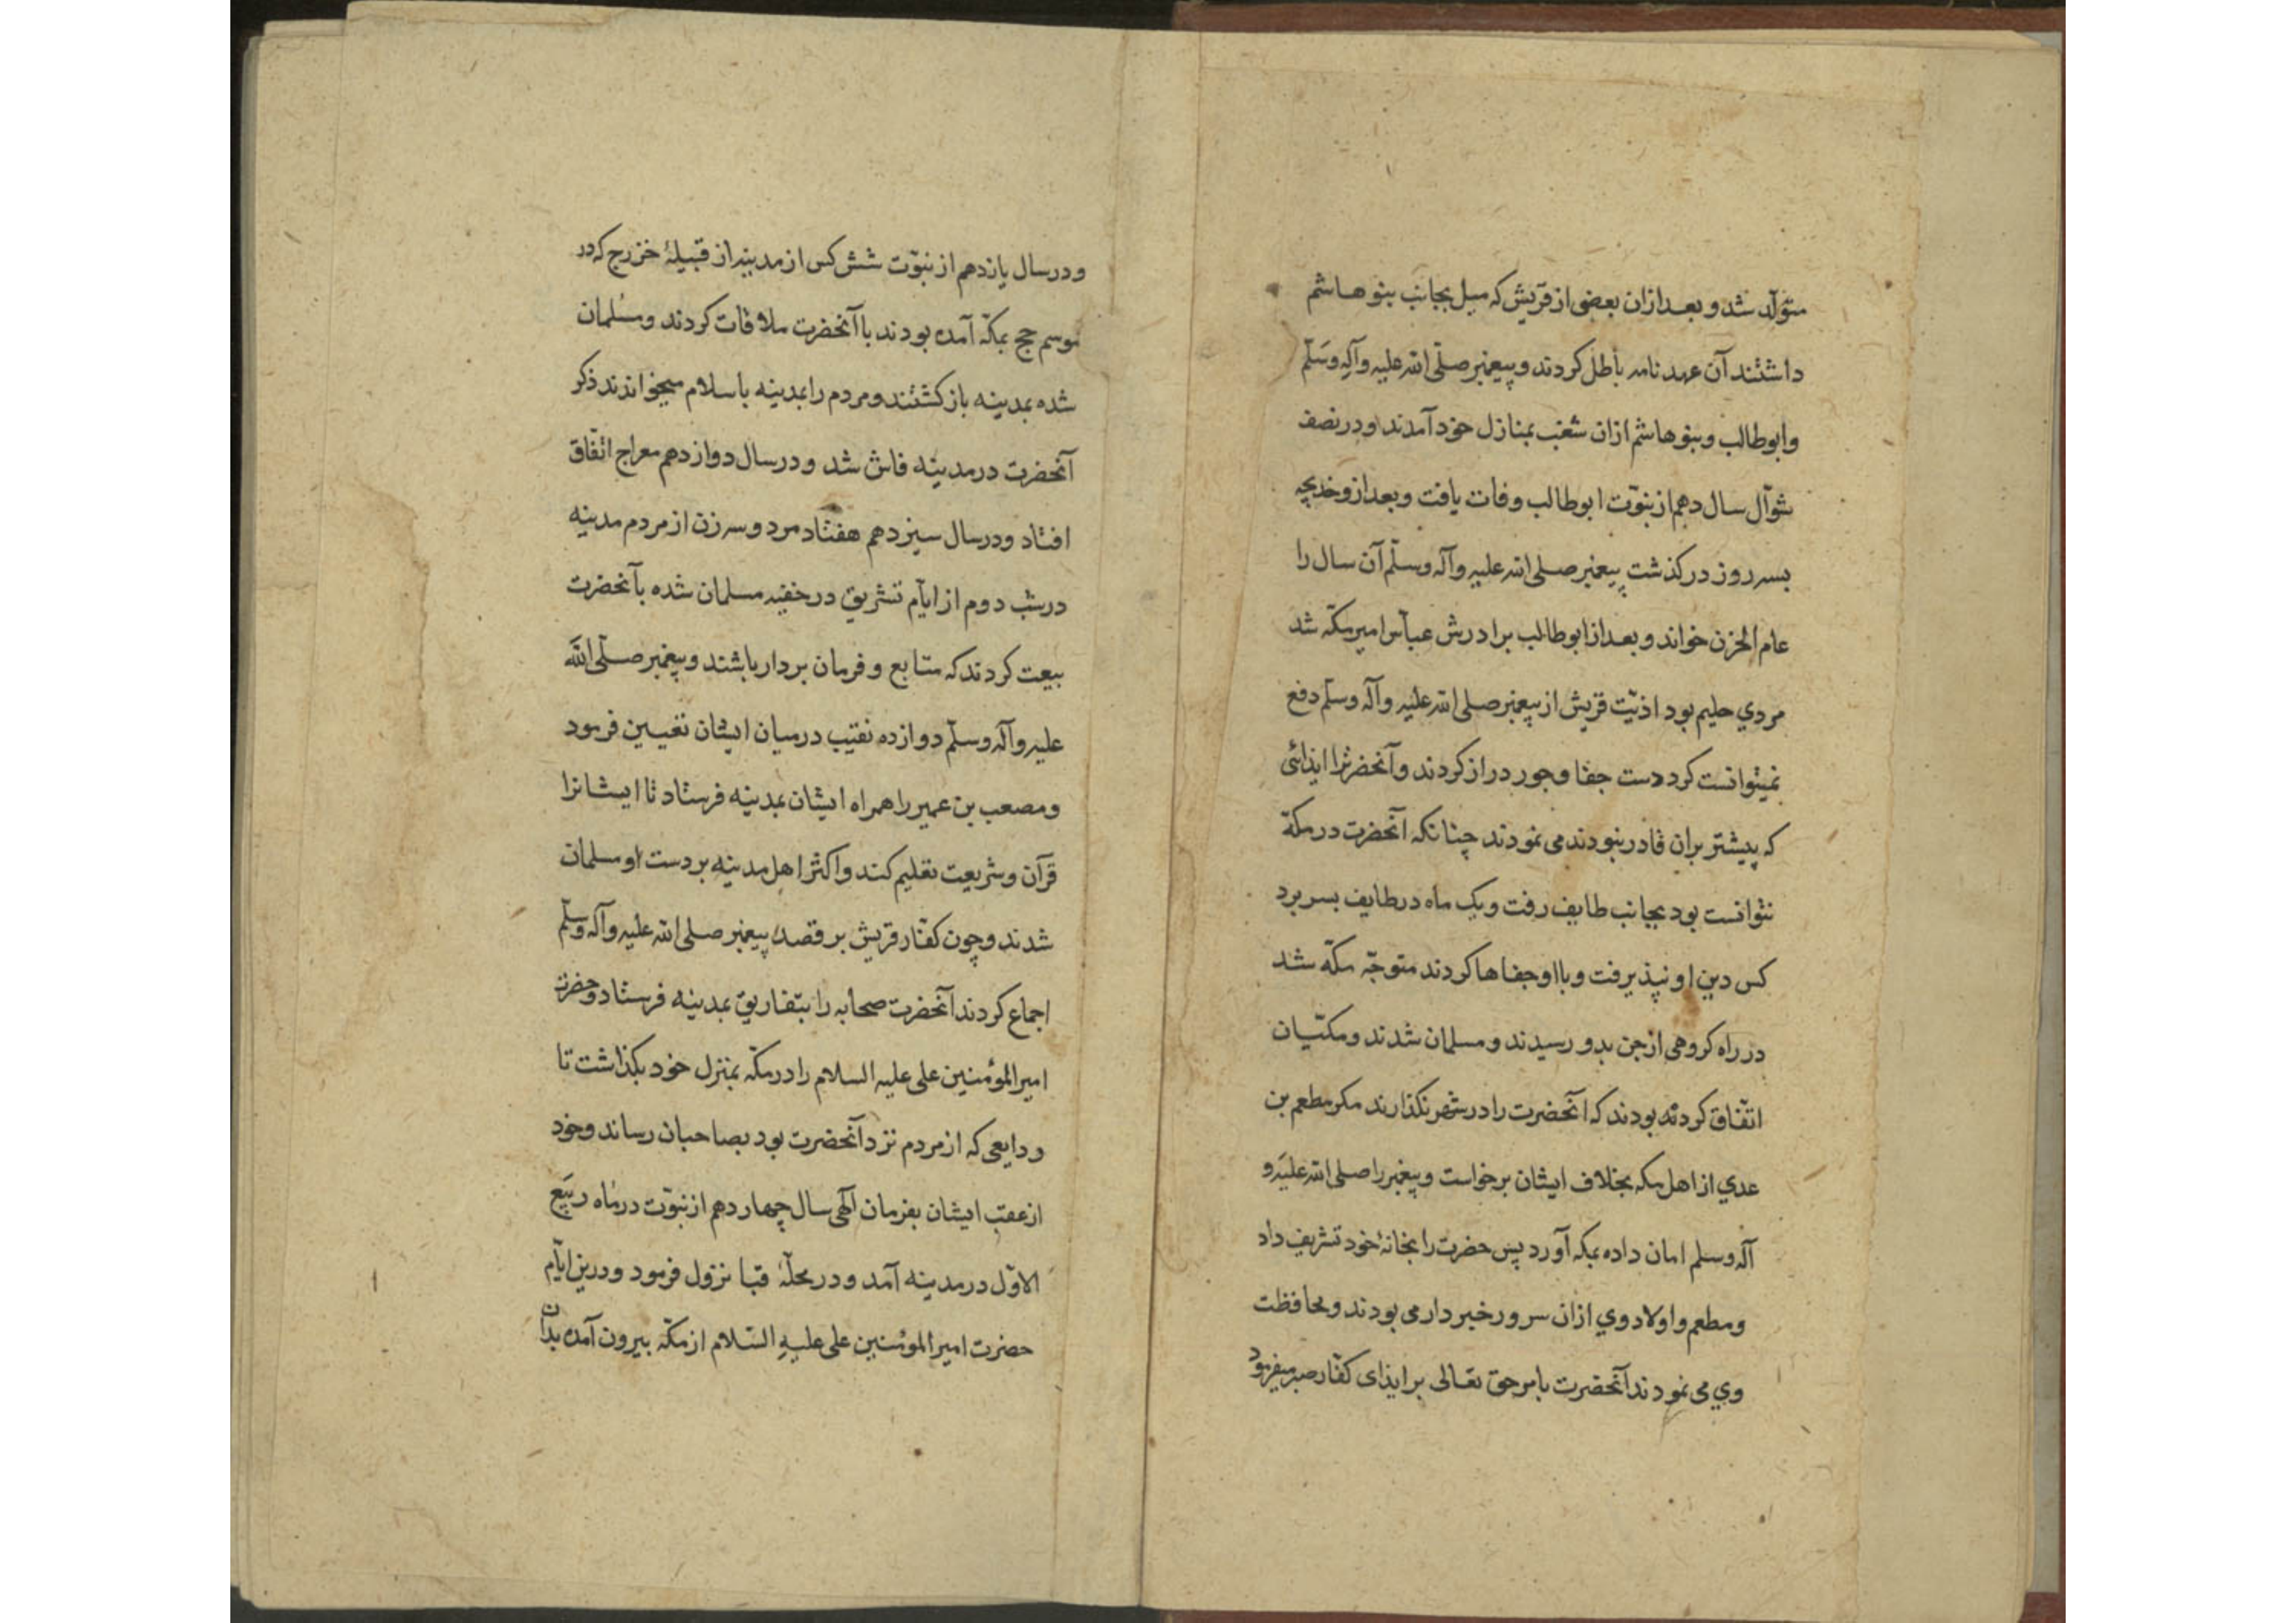 متولّد شد و بعد ازان بعضی از قریش که میل بجانب بنو هاشم
داشتند آن عهد نامه باطل کردند و پیغمبر صلّی الله علیه وآله وسَلّم
وابوطالب و بنو هاشم ازان شعب بمنازل خود آمدند و در نصف
شوّال سال دهم از نبوّت ابوطالب وفات یافت و بعد ازو خدیجه
بسه روز درکذشت پیغمبر صلی الله علیه وآله وسلّم آن سال را
عام الحزن خواند و بعد از ابوطالب برادرش عبّاس امیر مکّه شد
مردي حلیم بود اذیّت قریش از پیغمبر صلی الله علیه وآله وسلّم دفع
نمیتوانست کرد دست جفا و جور دراز کردند و آنحضرترا ایذائی
که پیشتر بران قادر نبودند می نمودند چنانکه آنحضرت در مکّه
نتوانست بود بجانب طایف رفت و یک ماه در طایف بسر برد
کس دین او نپذیرفت و با او جفاها کردند متوجّه مکّه شد
در راه کروهی از جن بدو رسیدند و مسلمان شدند و مکّیان
اتّفاق کرده بودند که آنحضرت را در شهر نکذارند مکر مطعم بن
عدي از اهل مکه بخلاف ایشان برخواست و پیغمبر را صلی الله علیَه و
آله وسلم امان داده بمکه آورد پس حضرت را بخانهٔ خود تشریف داد
و مطعم و اولاد وي ازان سرور خبردار می بودند و محافظت
وي می نمودند آنحضرت بامر حق تعالی بر ایذای کفّار صبر میفرمود
و در سال یازدهم از نبوّت شش کس از مدینه از قبیلهٔ خزرج که در
موسم حج بمکّه آمده بودند با آنحضرت ملاقات کردند و مسُلمان
شده بمدینه باز کشتند و مردم را بمدینه باسلام میخواندند ذکر
آنحضرت در مدینه فاش شد و در سال دوازدهم معراج اتّفاق
افتاد و در سال سیزدهم هفتاد مرد و سه زن از مردم مدینه
در شب دوم از ایّام تشریق در خفیه مسلمان شده بآنحضرت
بیعت کردند که متابع و فرمان بردار باشند و پیغمبر صلّی اللهَ
علیه وآله وسلّم دوازده نقیب در میان ایشان تعیین فرمود
و مصعب بن عمیر را همراه ایشان بمدینه فرستاد تا ایشانرا
قرآن و شریعت تعلیم کند و اکثر اهل مدینه بر دست او مسلمان
شدند و چون کفّار قریش بر قصد پیغمبر صلی الله علیه وآله وسلّم
اجماع کردند آنحضرت صحابه را بتفاریق بمدینه فرستاد و حضرت
امیر المؤمنین علی علیه السلام را در مکّه بمنزل خود بکذاشت تا
ودایعی که از مردم نزد آنحضرت بود بصاحبان رساند و خود
از عقب ایشان بفرمان آلهی سال چهاردهم از نبوّت در ماه ربیَع
الاوّل در مدینه آمد و در محلّهٔ قبا نزول فرمود و درین ایّام
حضرت امیر المؤمنین علی علیهِ السّلام از مکّه بیرون آمده بدان